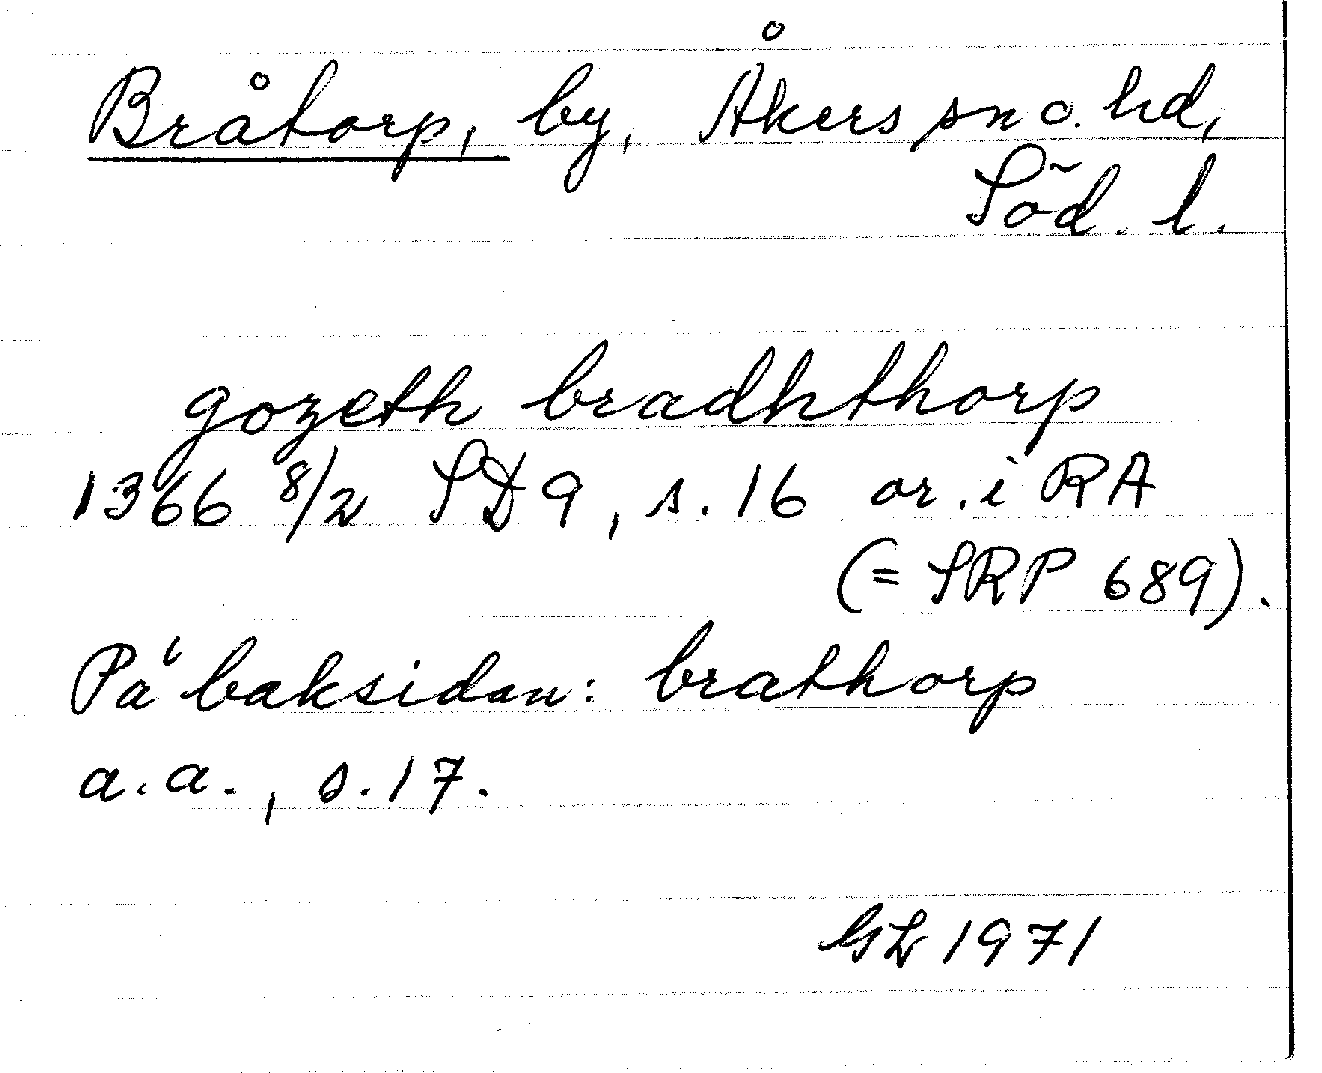 Bråtorp, by, Åkers sn o. hd,
Söd. l.
gozeth bradhthorp
1366 8/2 SD 9, s. 16 or. i RA
(= SRP 689).
På baksidan: brathorp
a.a., s. 17.
GL 1971